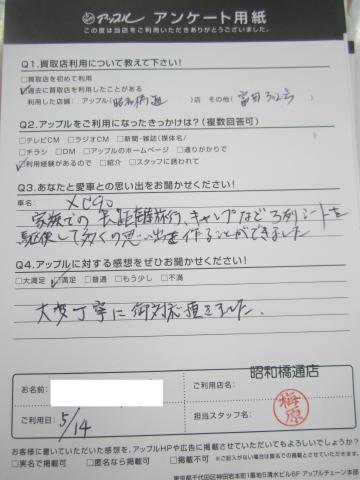 アップル アンケート用紙
この度は当店をご利用いただきありがとうございました。
Q1.買取店利用について教えて下さい!
□買取店を初めて利用
□過去に買取店を利用したことがある
利用した店舗: アップル(昭和橋通)店 その他(富田302号)
Q2.アップルをご利用になったきっかけは?(複数回答可)
□テレビCM □ラジオCM □新聞・雑誌(媒体名/ )
□チラシ □DM □アップルのホームページ □通りがかりで
□利用経験があるので □紹介 □スタッフに誘われて
Q3.あなたと愛車との思い出をお聞かせください!
車名: XC90
家族での長距離旅行、キャンプなど3列シートを
駆使して多くの思い出を作ることができました
Q4.アップルに対する感想をぜひお聞かせください!
□大満足 □満足 □普通 □もう少し □不満
大変丁寧に御対応頂きました。
お名前:
ご利用店名: 昭和橋通店
ご利用日: 5/14
担当スタッフ名: 梅原
お客様に書いていただいた感想を、アップルHPや広告に掲載させていただいてもよろしいでしょうか?
□実名で掲載可 □匿名なら掲載可 □掲載不可 ※ご記入がない場合は匿名での掲載とさせていただきます。
東京都千代田区神田岩本町1番地5清水ビル6F アップルチェーン本部